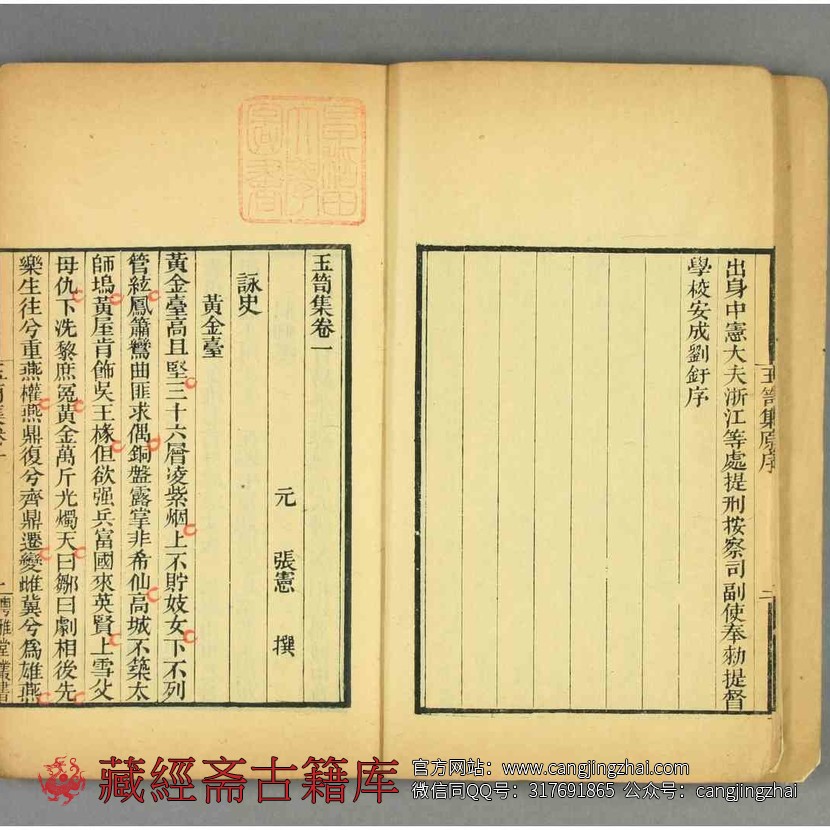 出身中憲大夫浙江等處提刑按察司副使奉勑提督
學校安成劉釪序
玉笥集原序
二
玉笥集卷一
元 張憲 撰
詠史
黃金臺
黃金臺高且堅三十六層凌紫烟上不貯妓女下不列
管絃鳳簫鸞曲匪求偶銅盤露掌非希仙高城不築太
師塢黃屋肯飾吳王椽但欲强兵富國來英賢上雪父
母仇下洗黎庶冤黃金萬斤光燭天曰鄒曰劇相後先
樂生往兮重燕權燕鼎復兮齊鼎遷變雌冀兮爲雄燕
粵雅堂叢書
藏經斋古籍库
官方网站：www.cangjingzhai.com
微信同QQ号：317691865 公众号：cangjingzhai